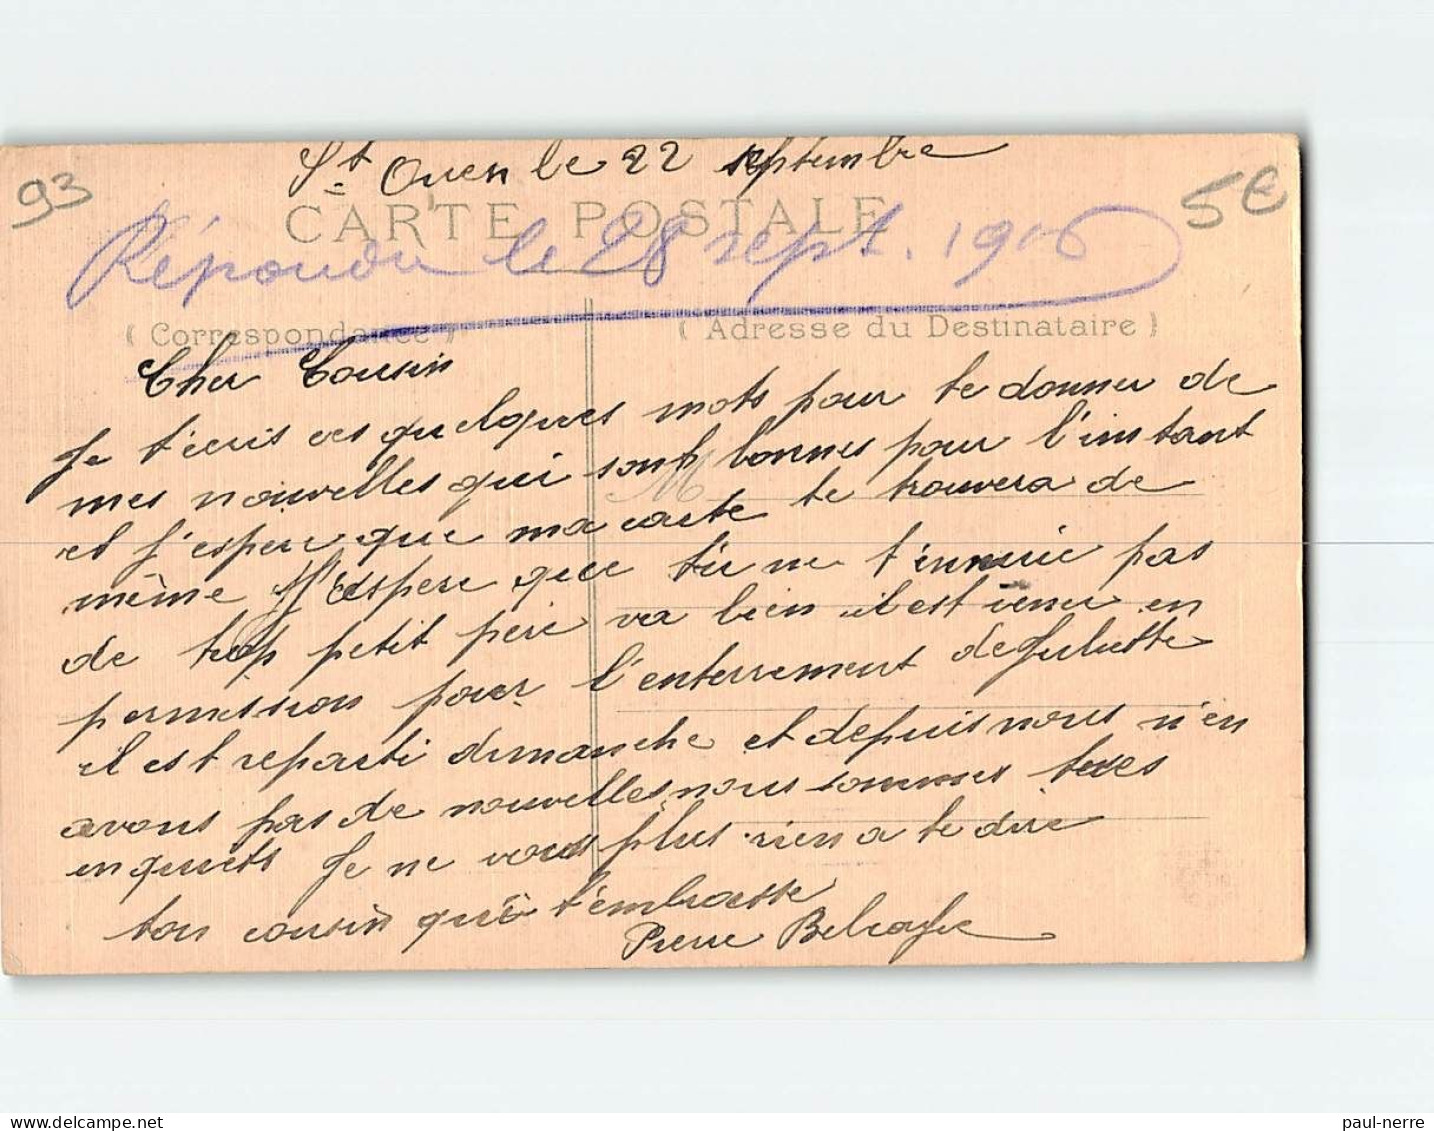 St Ouen le 22 septembre
93
5€
CARTE POSTALE
Répondu le 28 sept. 1916
( Correspondance )
( Adresse du Destinataire )
Cher Cousin
Je t'ecris ces quelques mots pour te donner de
mes nouvelles qui sont bonnes pour l'instant
M
et j'espere que ma carte te trouvera de
même J'espere que tu ne t'ennuie pas
de trop petit pere va bien il est venu en
permission pour l'enterrement de Juliette
il est reparti dimanche et depuis nous n'en
avons pas de nouvelles nous sommes tres
enquiets Je ne vous plus rien a te dire
ton cousin qui t'embrasse
Pierre
paul-nerre